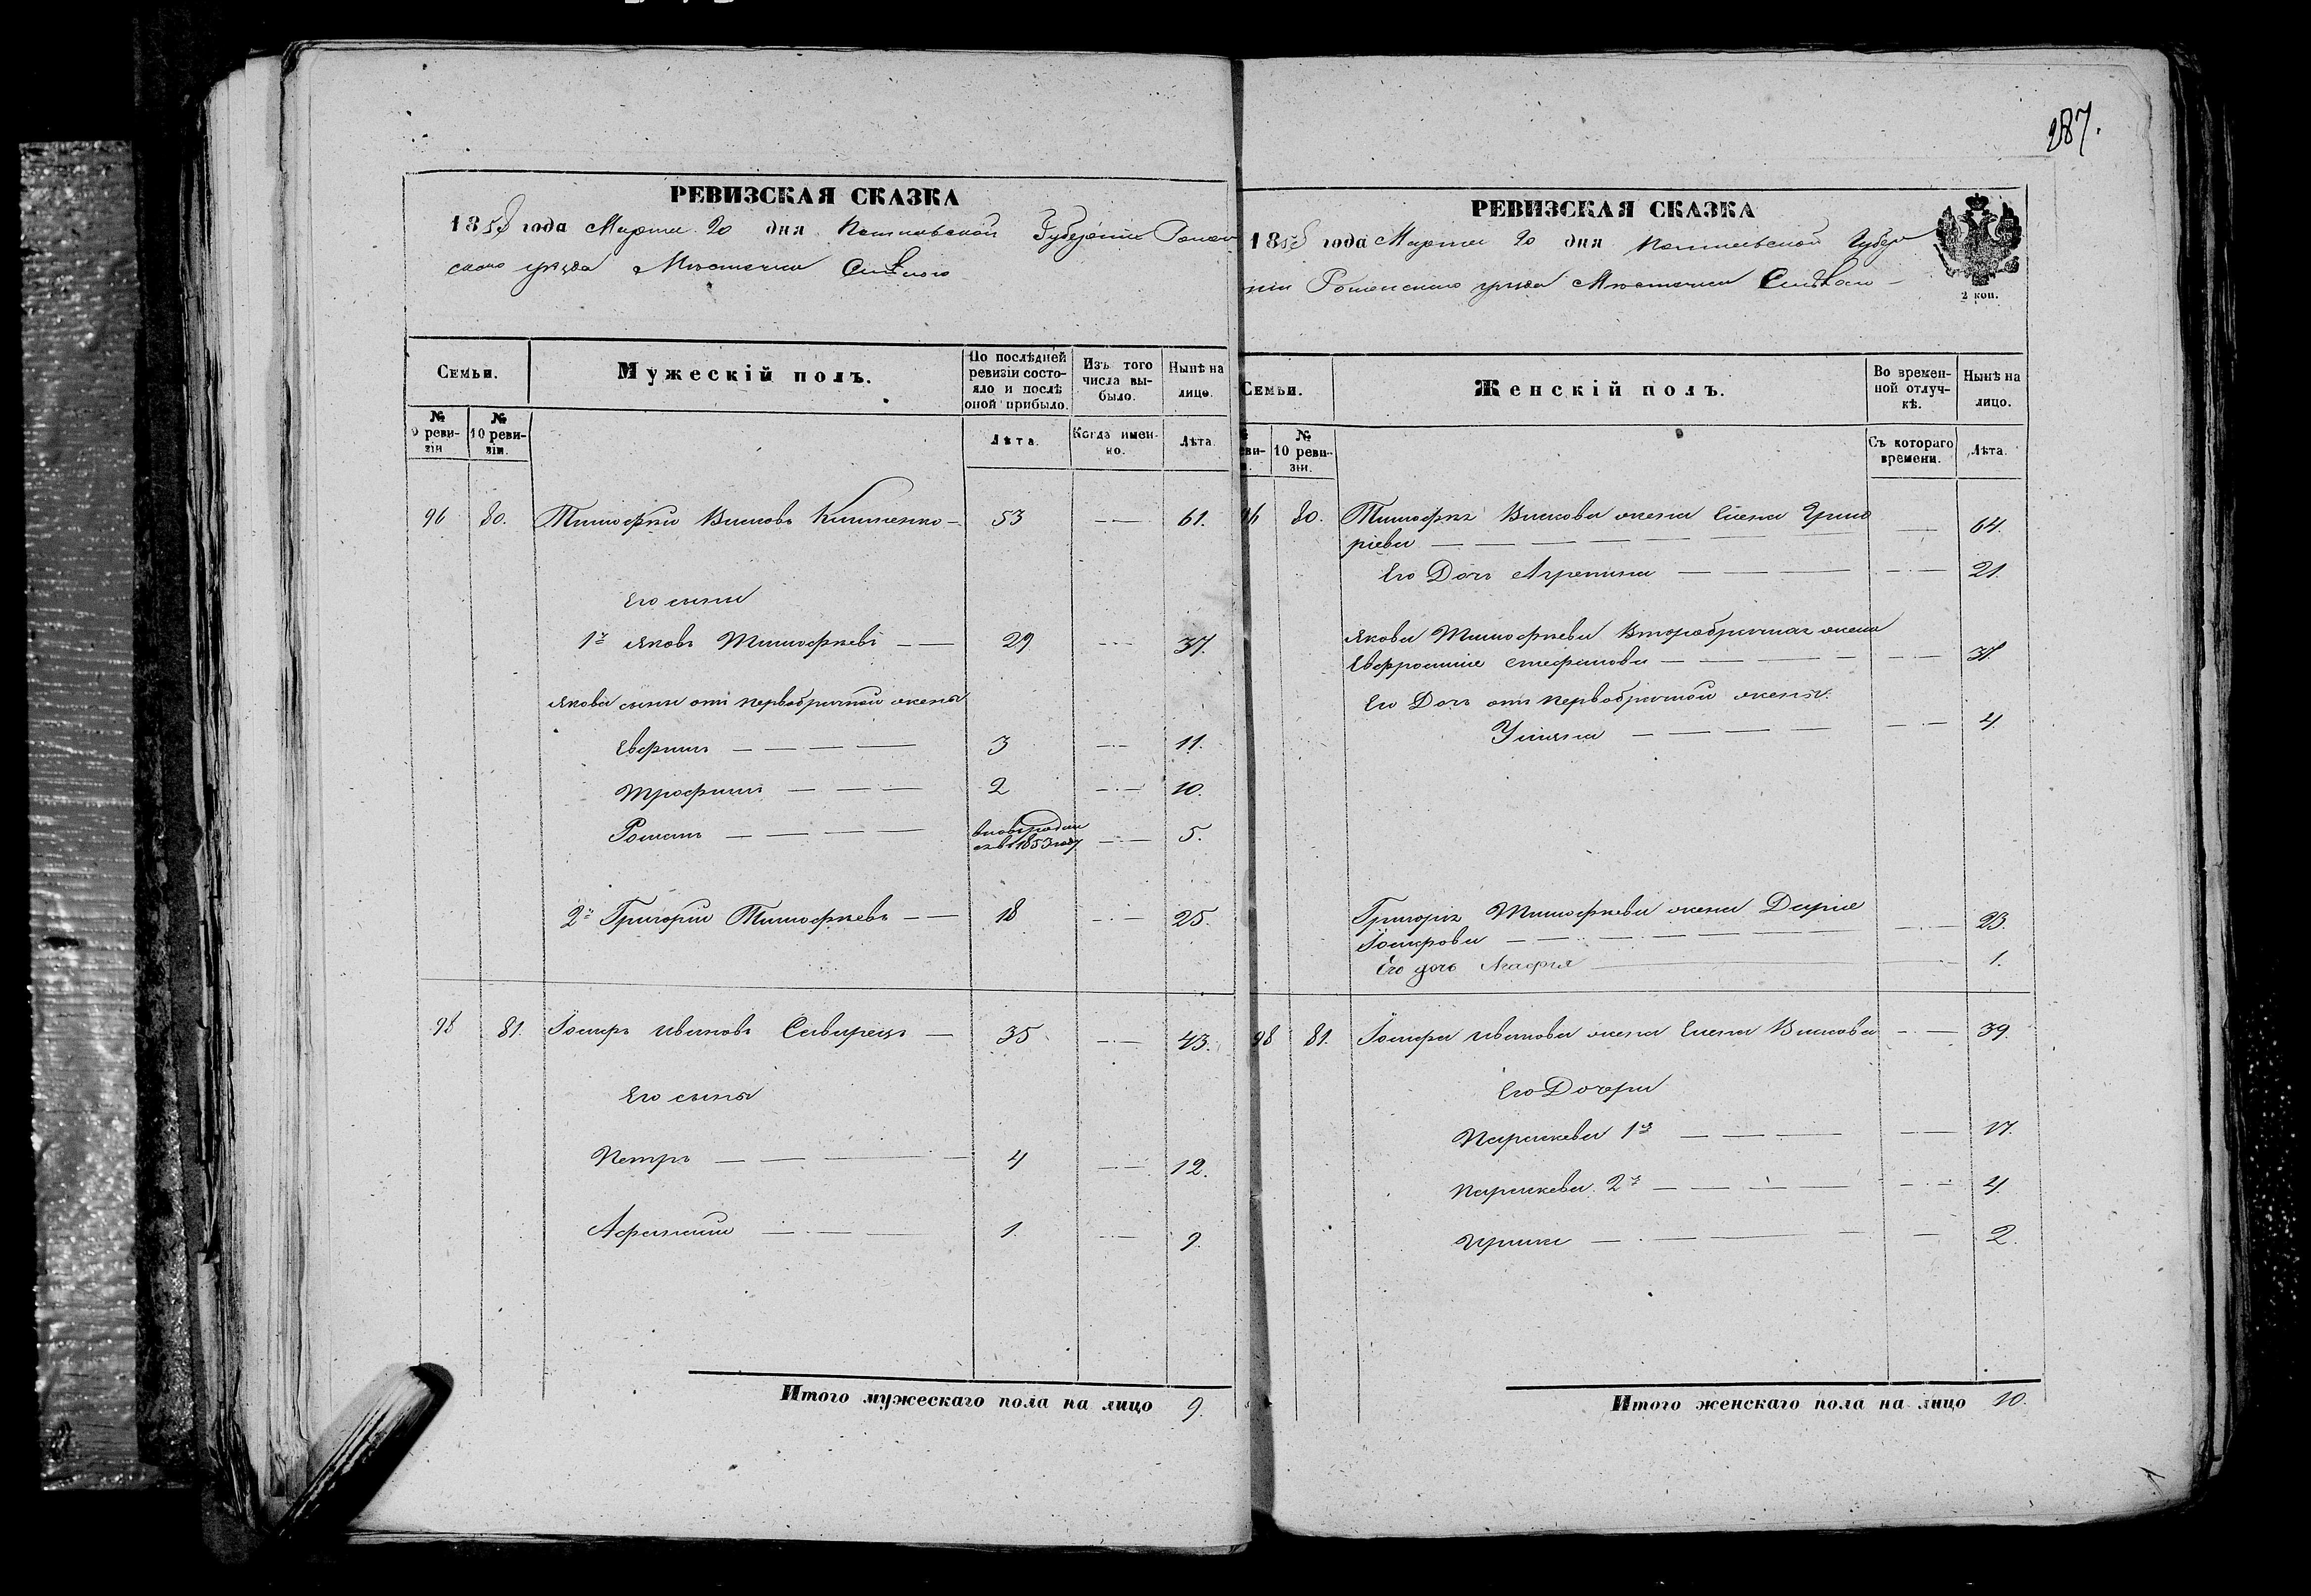 287.
РЕВИЗСКАЯ СКАЗКА
1858 года Марта 20 дня Полтавской Губерніи Ромен
скаго уѣзда Мѣстечка Смѣлаго
Семьи.
Мужескій полъ.
По послѣдней ревизіи состояло и послѣ оной прибыло.
Изъ того числа выбыло.
Нынѣ на лицо.
№ 9 ревизіи
№ 10 ревизіи.
Лѣта.
Когда именно.
Лѣта.
96 80. Тимофѣй Власовъ 53 — 61.
Его сыны
1й Яковъ Тимофѣевъ — — 29 — 37.
Якова сыны отъ первобрачной жены
Евфимъ — — — — 3 — 11.
Трофимъ — — — 2 — 10.
Романъ — — — — вновь родил
ся въ 1853 году — 5.
2й Григорій Тимофѣевъ — — 18 — 25.
98 81. Іосифъ Ивановъ — 35 — 43.
Его сыны
Петръ — — — — 4 — 12.
Афанасій — — — 1. — 9.
Итого мужескаго пола на лицо 9.
РЕВИЗСКАЯ СКАЗКА
1858 года Марта 20 дня Полтавской Губер
ніи Роменскаго уѣзда Мѣстечка Смѣлаго —
2 коп.
Семьи.
Женскій полъ.
Во временной отлучкѣ.
Нынѣ на лицо.
№ 10 ревизіи.
Съ котораго времени.
Лѣта.
96 80. Тимофѣя Власова жена Елена Григо
ріева — — — — — — — 64.
Его Дочь Агрепина — — — — — 21.
Якова Тимофѣева Второбрачная жена
Евфросинія Стефанова — — — — — 31.
Его Дочь отъ первобрачной жены.
Ульяна — — — — — 4.
Григорія Тимофѣева жена Дарія
Іосифова — — — — — — — 23.
Его дочь Агафія — — 1.
98 81. Іосифа Иванова жена Елена Власова — 39.
Его Дочери
Параскева 1я — — — — 17.
Параскева 2я — — — — — 4.
Ирина — — — — — — 2.
Итого женскаго пола на лицо 10.